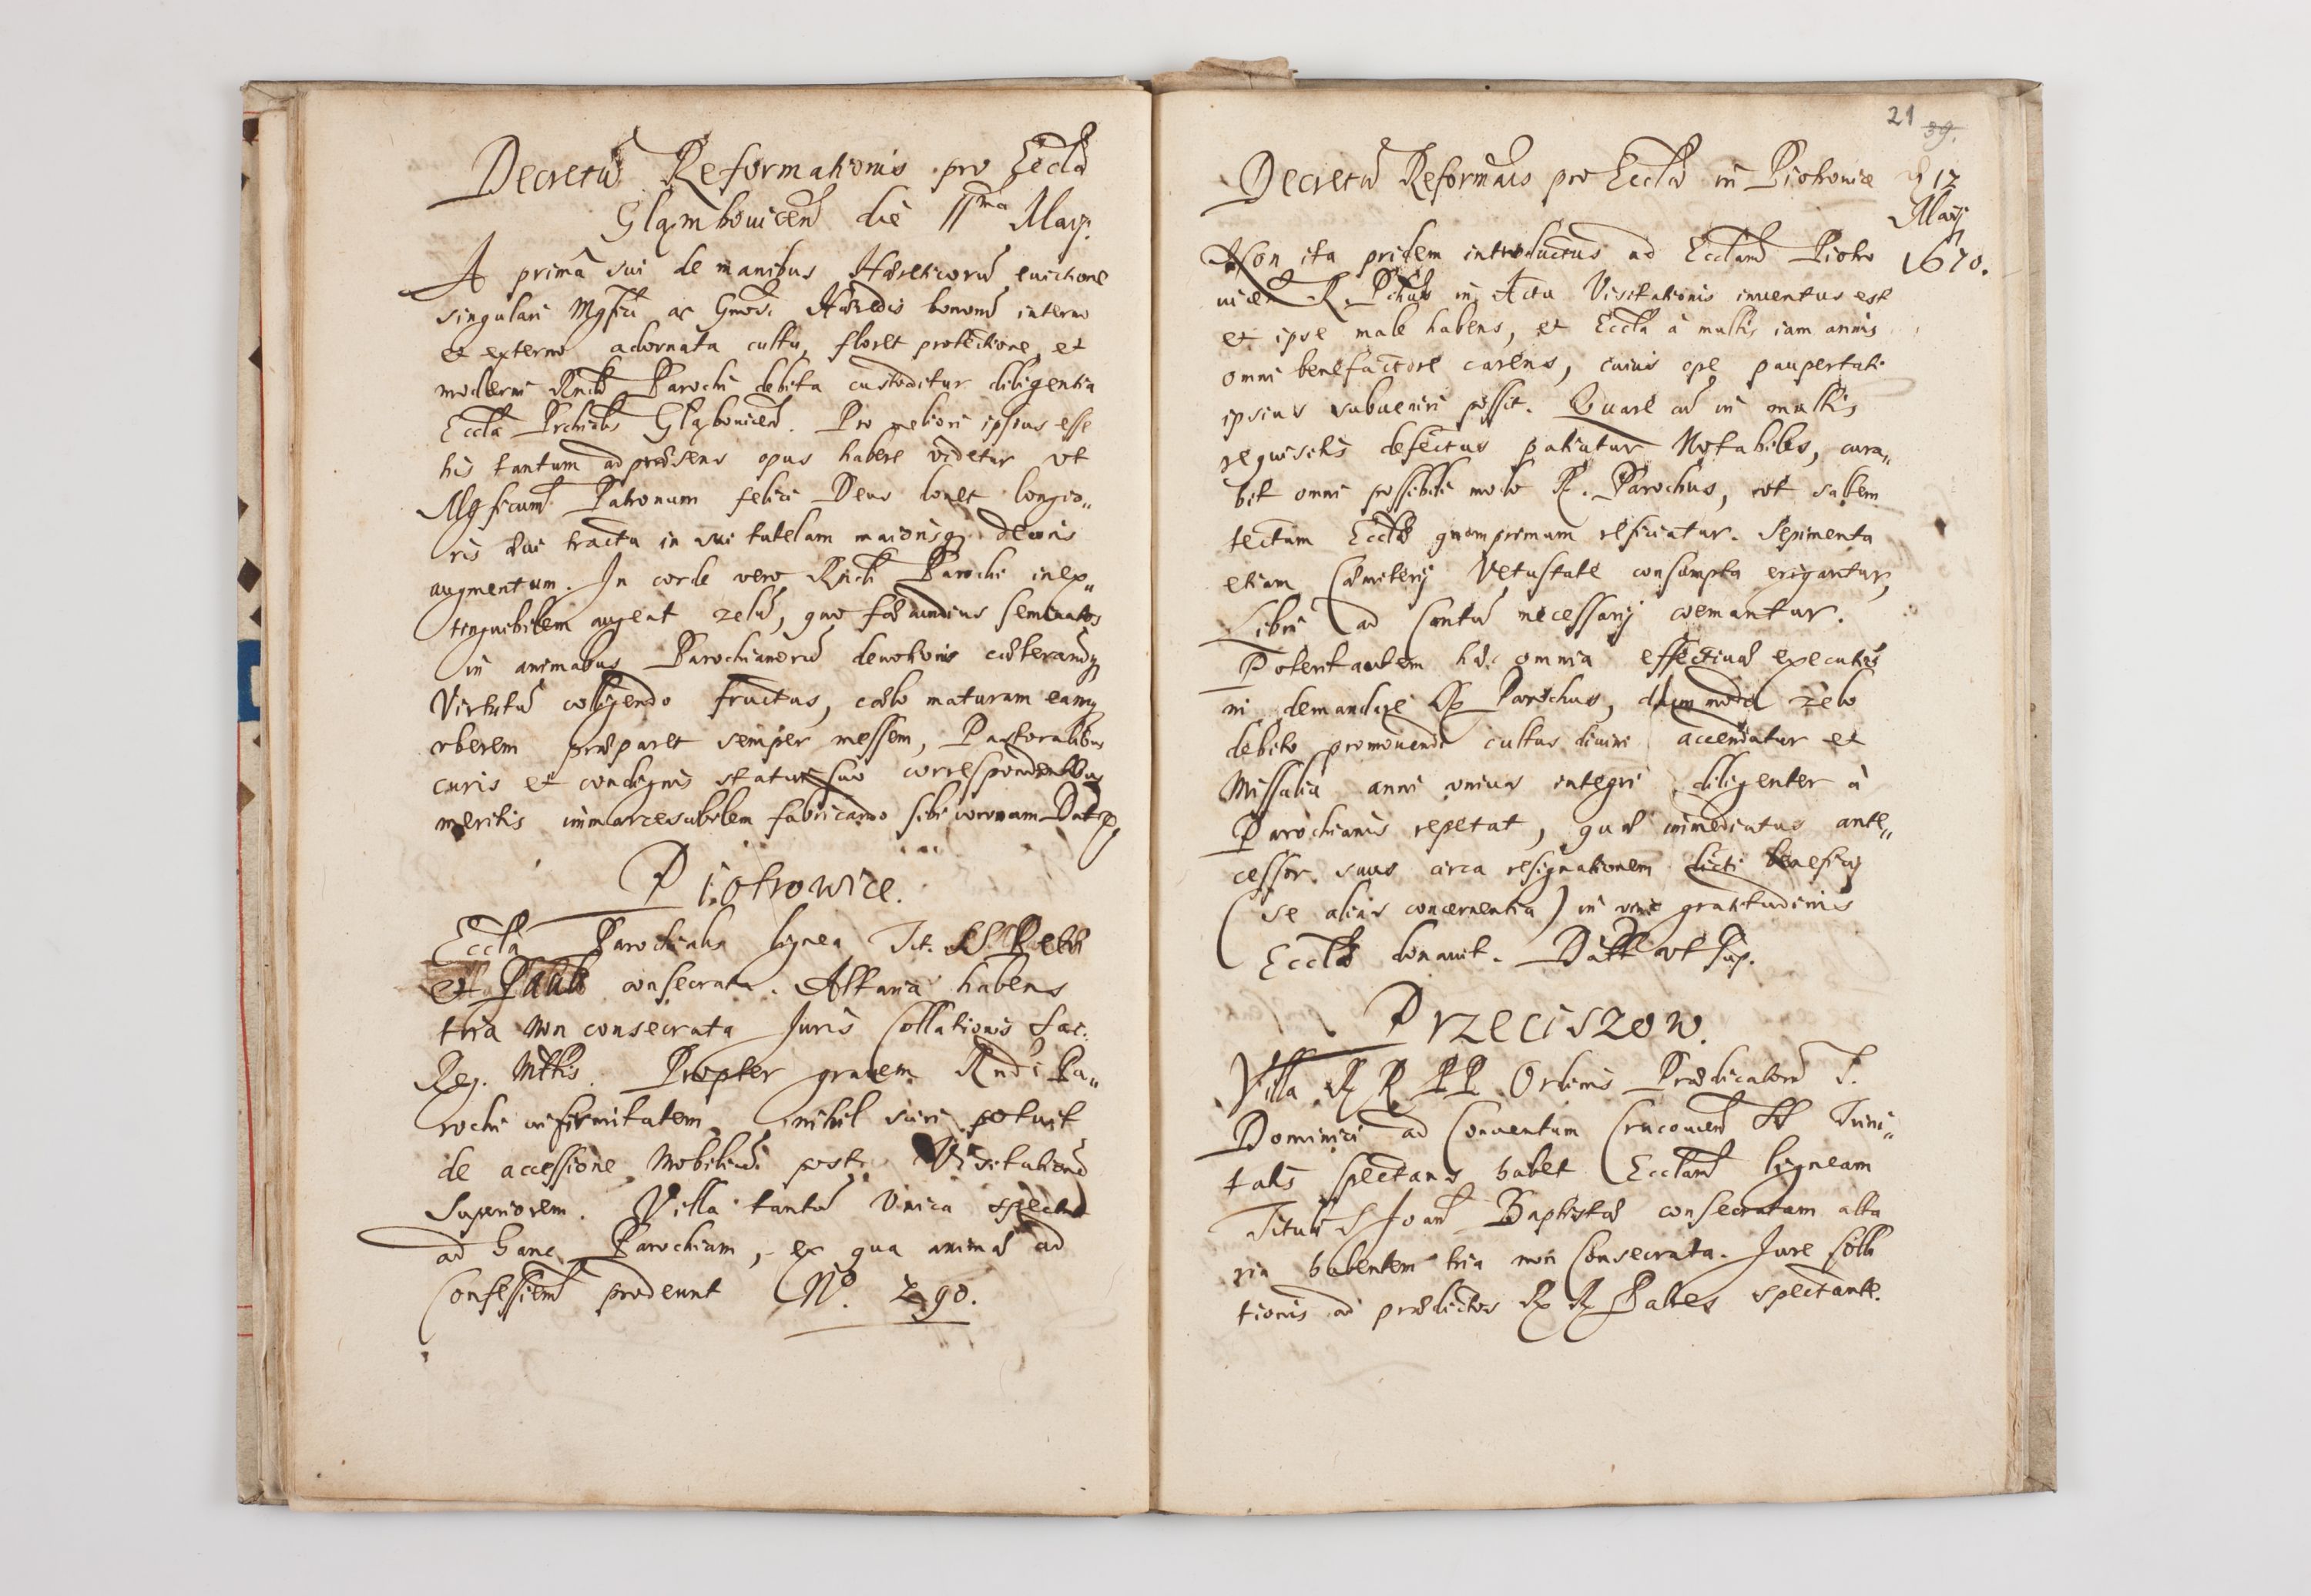 Decretũ Reformationis pro Eccla
Glęmbouicen die 11ma Maij.
A primâ sui de manibus Hæreticorũ euictione
singulari Mgfci ac Gnosi Hæredis bonorum interno
et externo adornata cultu, floret protectione et
moderni Rndi Parochi debita custoditur diligentia
Eccla Prchialis Glębouicen. Pro meliori ipsius esse
his tantum ad præsens opus habere videtur vt
Mgficum Patronum felici Deus donet longio„
ris æui tractu in sui tutelam maiorisq decoris
augmentum. In corde vero Rndi Parochi inex„
tinguibilem augeat zelũ, quo fœcundius seminatos
in animabus Parochianorũ deuotionis cæterarũq
Virtutũ colligendo fructus, cœlo maturam eamq
vberem præparet semper messem, Pastoralibus
curis et condignis statui suo correspondentibus
meritis immarcescibilem fabricando sibi coronam. Dat
Piotrowice.
Eccla Parochialis lignea Tit. S. Petri
et Pauli consecrata. Altaria habens
tria non consecrata Juris Collationis Sac:
Reg. Mttis. Propter grauem Rndi Pa„
rochi infirmitatem nihil sciri potuit
de accessione Mobilium post Visitationẽ
Superiorem. Villa tantũ Vnica spectat
ad hanc Parochiam, ex qua animæ ad
Confessionem prodeunt No. 290.
21 39.
Decretũ Reformãis pro Eccla in Piotrowice d 12
Maij
1670.
Non ita pridem introductus ad Ecclam Piotro
uicen R. Pchus in Actu Visitationis inuentus est
et ipse male habens, et Eccla à multis iam annis
omni benefactore carens, cuius ope paupertati
ipsius subueniri possit. Quare cũ in multis
requisitis defectus patiatur Notabiles, cura„
bit omni possibili modo R. Parochus, vt saltem
tectum Ecclæ quamprimum reficiatur. Sepimenta
etiam Cæmiterij Vetustate consumpta erigantur,
Libri ad Cantũ necessarij coemantur.
Poterit autem hæc omnia effectiuæ executio
ni demandare R Parochus, dummodo zelo
debito promouendi cultus diuini accendatur et
Missalia anni vnius integri diligenter à
Parochianis repetat, quæ immediatus ante„
cessor suus circa resignationem dicti beneficij
(se alias concernentia) in vim gratitudinis
Ecclæ donauit. Datt vt sup.
Przeciszow.
Villa R R PP Ordinis Prædicatorũ S.
Dominici ad Conuentum Cracouien SS Trini„
tatis spectans habet Ecclam ligneam
Tituli S Joan Baptistæ consecratam alta
ria habentem tria non Consecrata. Jure Colla
tionis ad prædictos R R Patres spectante.